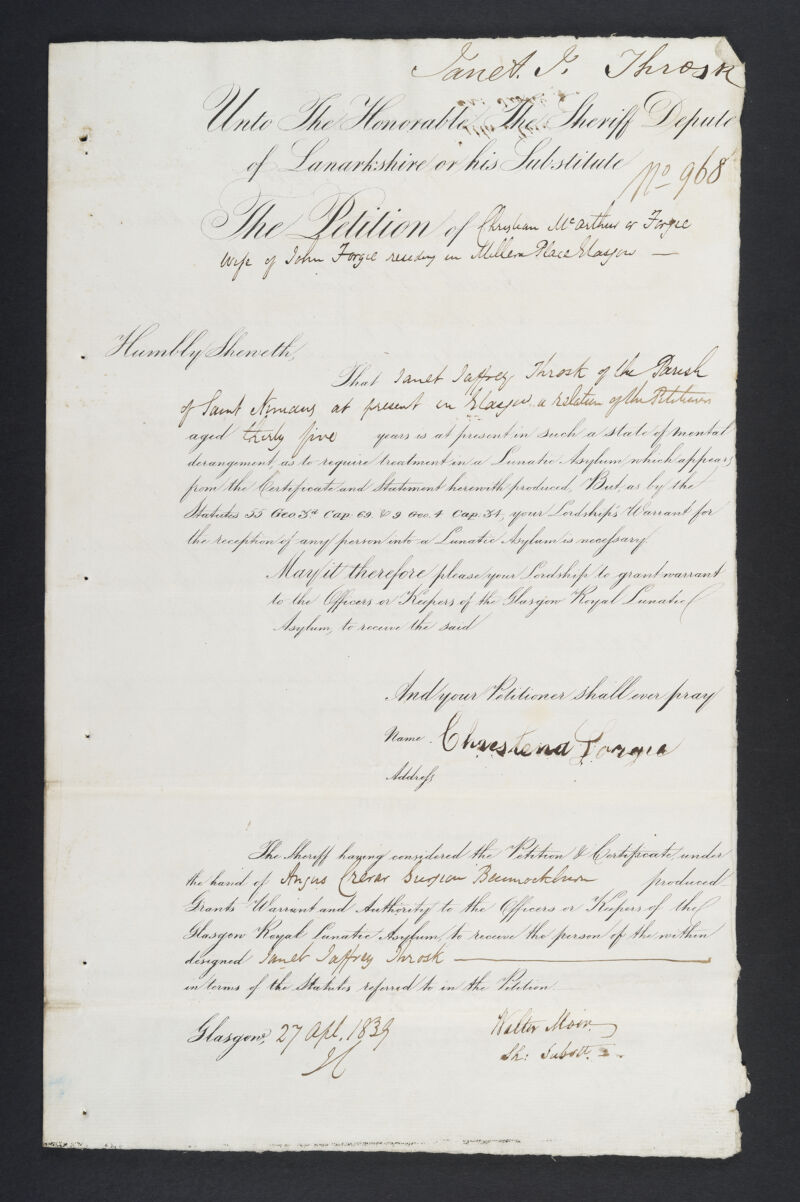 Janet. J. Throsk
Unto The Honorable The Sheriff Depute
of Lanarkshire or his Substitute
No 968
The Petition of Chrystian McArthur or Forgie
Wife of John Forgie residing in Millers Place Glasgow —
Humbly Sheweth,
That Janet Jaffrey Throsk of the Parish
of Saint Ninians at present in Glasgow a relation of the Petitioner
aged thirty five years is at present in such a state of mental
derangement, as to require treatment in a Lunatic Asylum which appears
from the Certificate and Statement herewith produced, But, as by the
Statutes 55 Geo. 3d Cap. 69. & 9 Geo. 4 Cap. 34, your Lordship's Warrant for
the reception of any person into a Lunatic Asylum is necessary.
May it therefore please your Lordship to grant warrant
to the Officers or Keepers of the Glasgow Royal Lunatic
Asylum, to receive the said
And your Petitioner shall ever pray
Name. Christena Forgie
Address
The Sheriff having considered the Petition & Certificate, under
the hand of Angus Crerar Surgeon Bannockburn produced
Grants Warrant and Authority to the Officers or Keepers of the
Glasgow Royal Lunatic Asylum, to receive the person of the within
designed Janet Jaffrey Throsk —
in terms of the Statutes referred to in the Petition.
Glasgow, 27 Apl. 1839
Walter Moir
Sh: Subste.